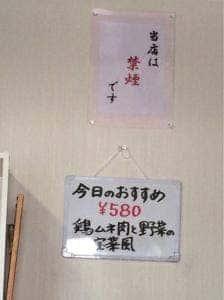 当店は
禁煙
です
今日のおすすめ
¥580
鶏ムネ肉と野菜の
風